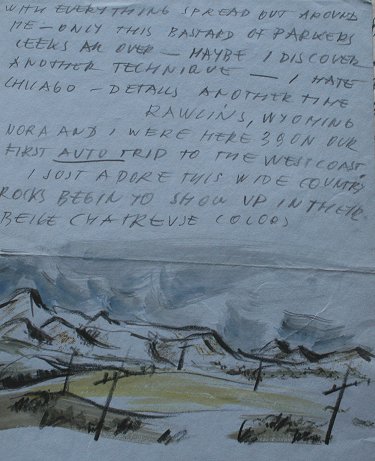 WITH EVERYTHING SPREAD OUT AROUND
ME – ONLY THIS BASTARD OF PARKERS
LEEKS AR OVER – MAYBE I DISCOVER
ANOTHER TECHNIQUE — I HATE
CHICAGO – DETAILS ANOTHER TIME
RAWLINS, WYOMING
DORA AND I WERE HERE ON OUR
FIRST AUTO TRIP TO THE WESTCOAST.
I JUST ADORE THIS WIDE COUNTRY
ROCKS BEGIN TO SHOW UP IN THEIR
BEIGE CHATREUSE COLORS